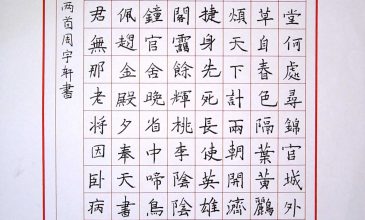 堂何處尋錦官城外
草自春色隔葉黃鸝
煩天下計兩朝開濟
捷身先死長使英雄
閣靄餘輝桃李陰陰
鐘官舍晚省中啼鳥
佩趨金殿夕奉天書
君無那老將因臥病
两首周宇軒書